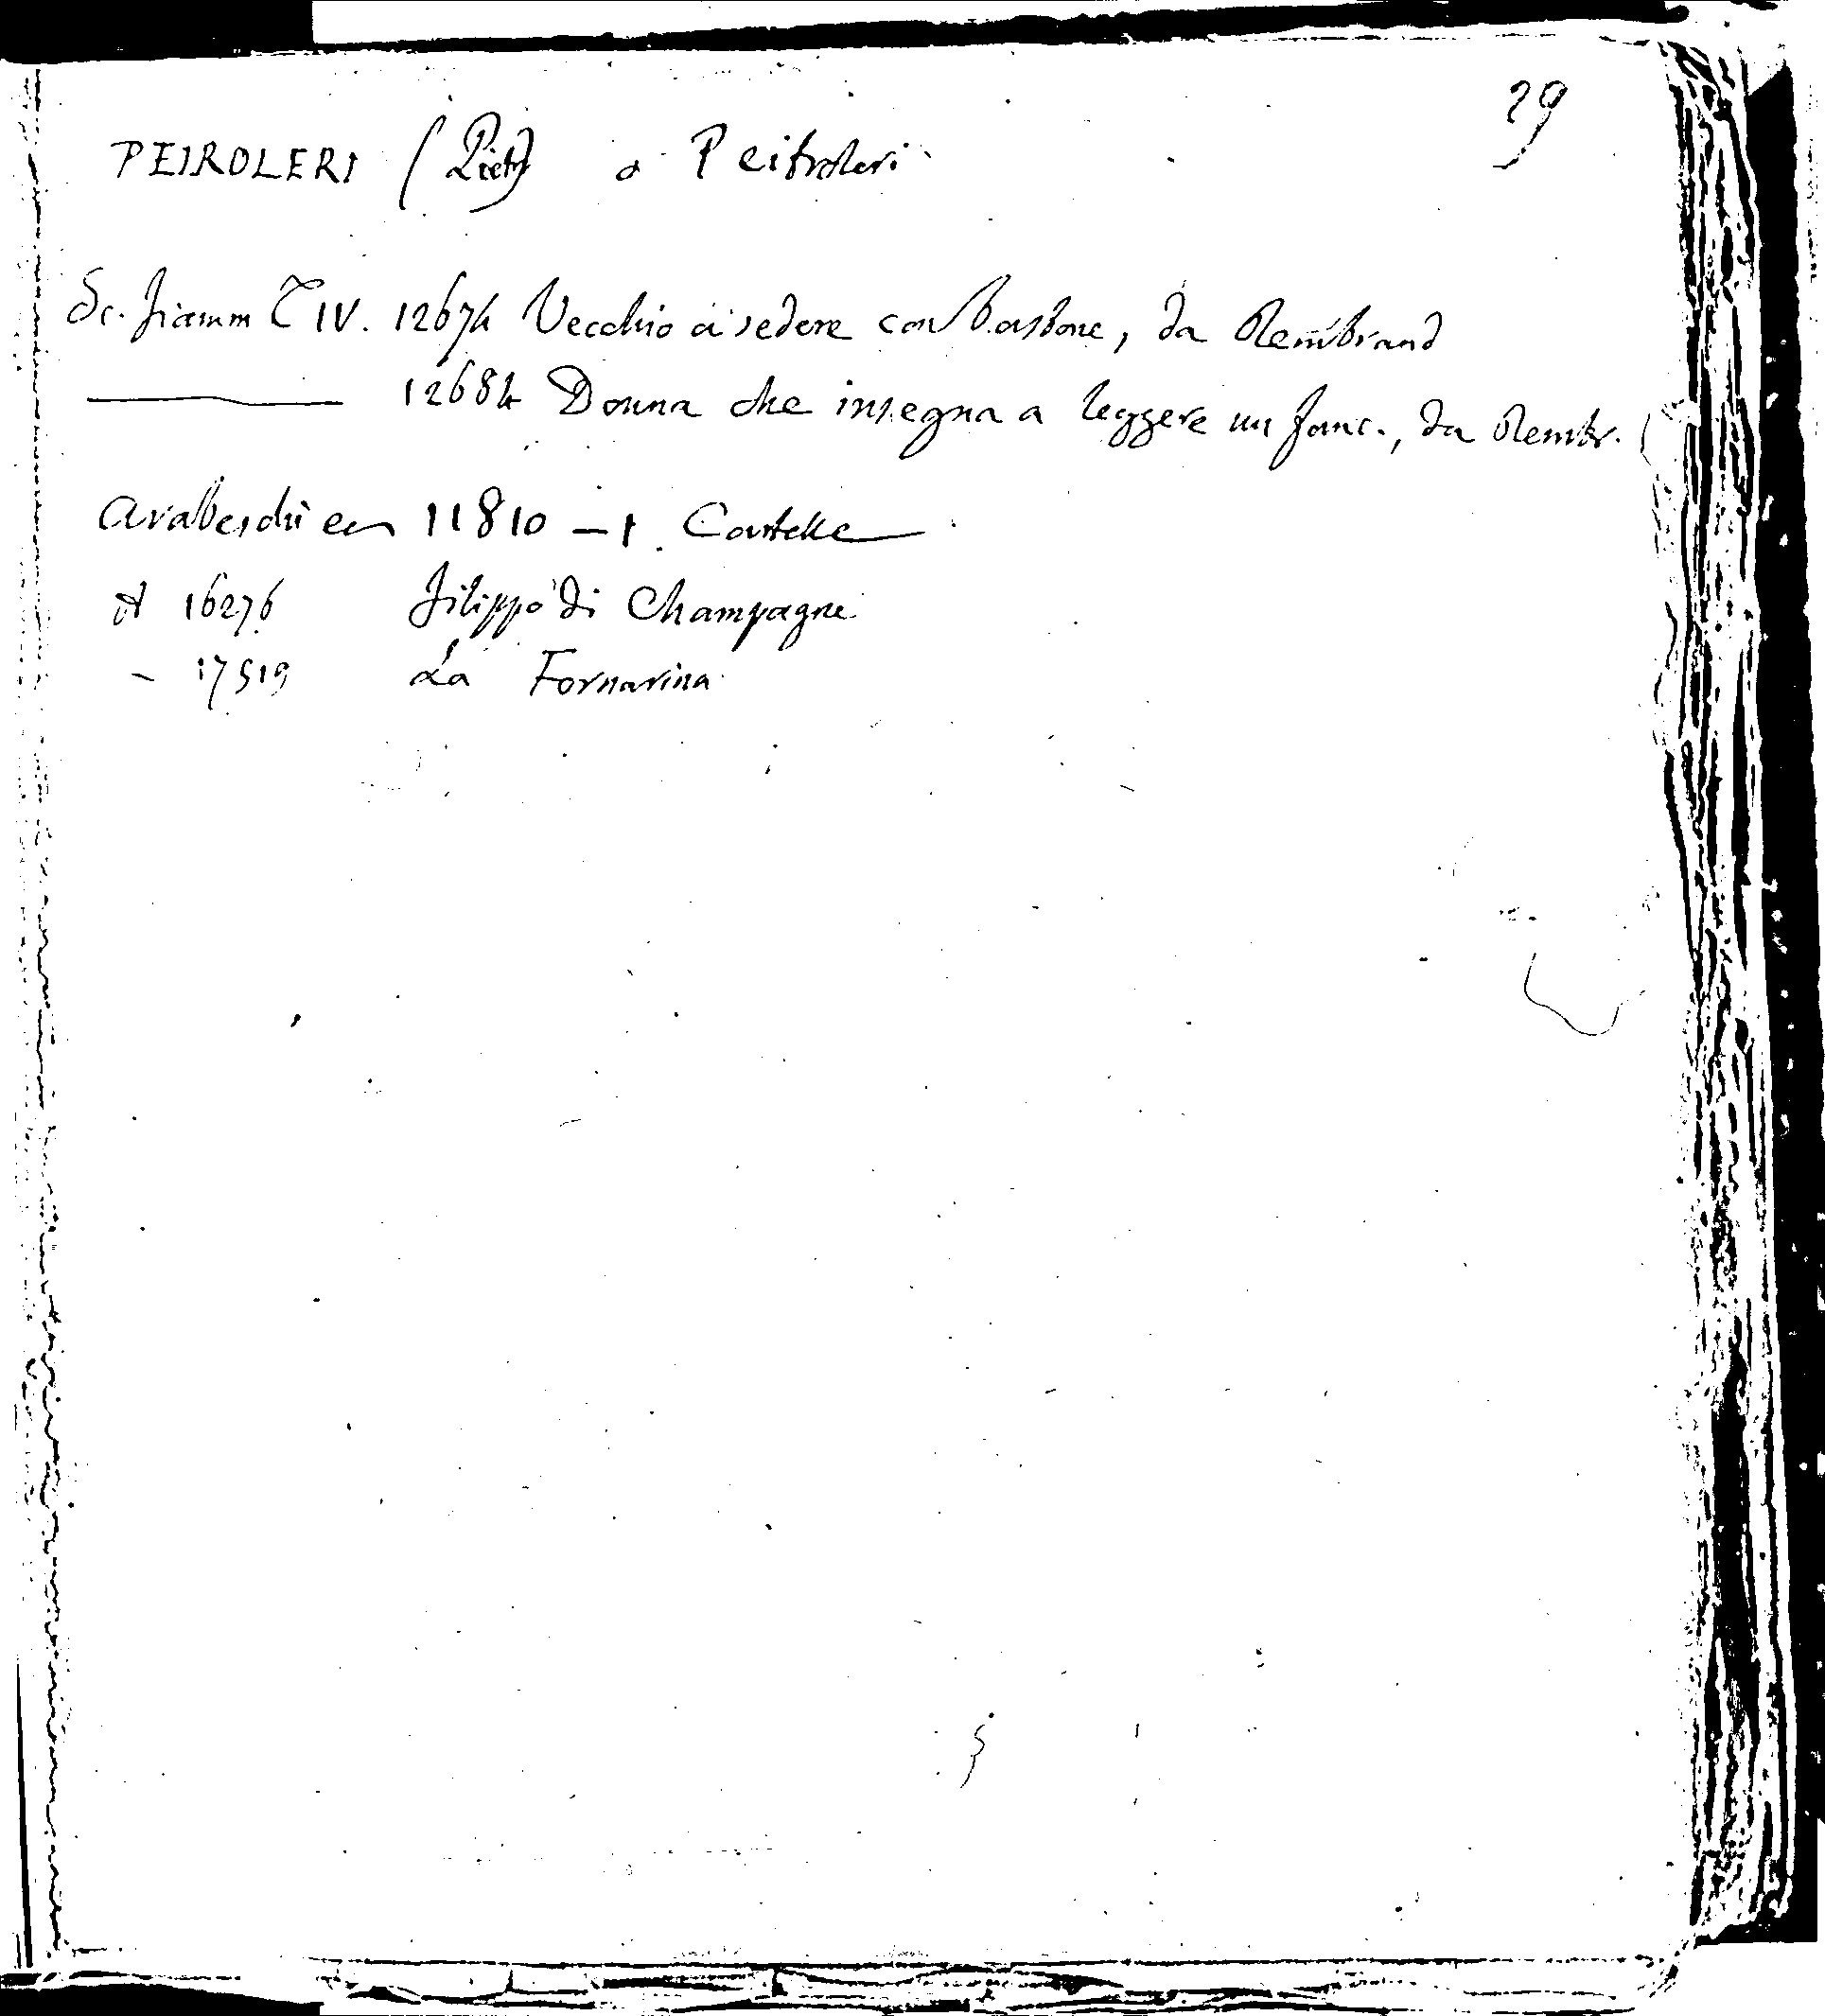 29
PEIROLERI (Pietro) o Peitroleri
Sc. fiamm T IV. 12674 Vecchio a sedere con bastone, da Rembrand
12684 Donna che insegna a leggere un fanc., da Rembr.
Arabeschi ecc 11810 - 1. Cartelle
A 16276 Filippo di Champagne
- 17519 La Fornarina